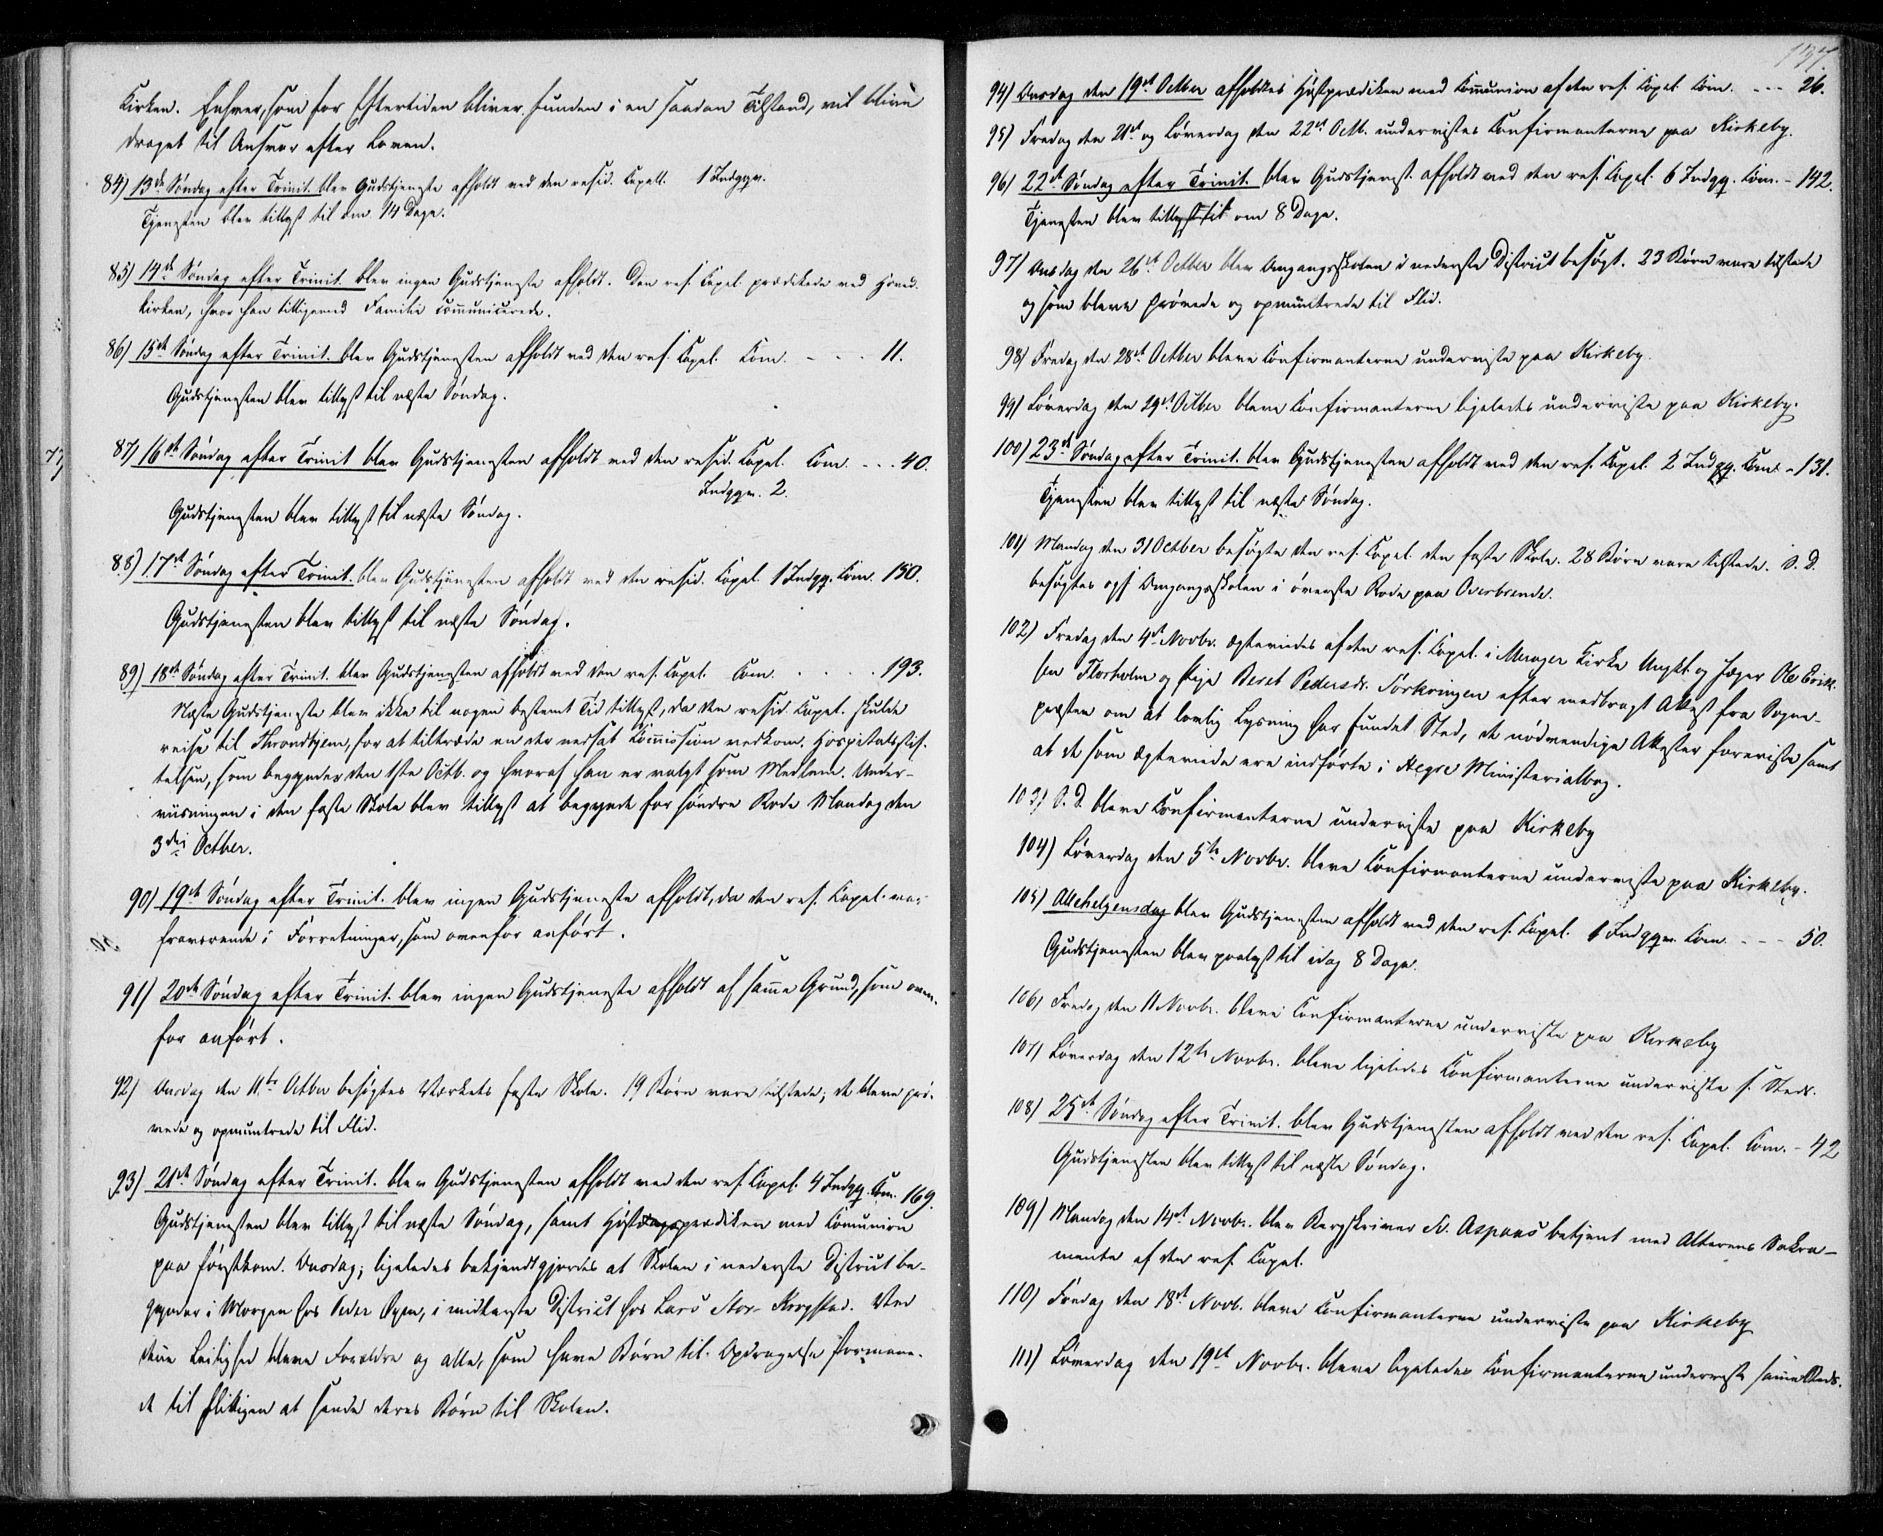 Kirken. Enhver, som for Eftertiden bliver funden i en saadan Tilstand, vil blive
draget til Ansvar efter Loven.
84) 13de Søndag efter Trinit. blev Gudstjeneste afholdt ved den resid. Capell. 1 Indggn.
Tjenesten blev tillyst til om 14 Dage.
85) 14de Søndag efter Trinit. blev ingen Gudstjeneste afholdt. Den res. Capel. prædikede ved Hoved-
kirken, hvor han tilligemed Familie communicerede.
86) 15de Søndag efter Trinit. blev Gudstjenesten afholdt ved den res. Capel. Com. - - - 11.
Gudstjenesten blev tillyst til næste Søndag.
87) 16de Søndag efter Trinit blev Gudstjenesten afholdt ved den resid. Capel. Com. - - - 40.
Indggn. 2.
Gudstjenesten blev tillyst til næste Søndag.
88) 17de Søndag efter Trinit. blev Gudstjenesten afholdt ved den resid. Capel. 1 Indgg. Com. 150.
Gudstjenesten blev tillyst til næste Søndag.
89) 18de Søndag efter Trinit. blev Gudstjenesten afholdt ved den res. Capel. Com. - - - 193.
Næste Gudstjeneste blev ikke til nogen bestemt Tid tillyst, da den resid. Capel. skulde
reise til Throndhjem, for at tiltræde en der nedsat Commission vedkom. Hospitalsstif-
telsen, som begynder den 1ste Octb. og hvoraf han er valgt som Medlem. Under-
viisningen i den faste Skole blev tillyst at begynde for søndre Rode Mandag den
3die Octber.
90) 19de Søndag efter Trinit. blev ingen Gudstjeneste afholdt, da den res. Capel. var
fraværende i Forretninger, som ovenfor anført.
91) 20de Søndag efter Trinit. blev ingen Gudstjeneste afholdt af samme Grund, som oven-
for anført.
92) Onsdag den 11te Octber besøgtes Værkets faste Skole. 19 Børn vare tilstede; de bleve prø-
vede og opmuntrede til Flid.
93) 21de Søndag efter Trinit. blev Gudstjenesten afholdt ved den res. Capel. 4 Indgg. Com. 169.
Gudstjenesten blev tillyst til næste Søndag, samt Høstprædiken med Communion
paa førstkom. Onsdag; ligeledes bekjendtgjordes at Skolen i nederste District be-
gynder i Morgen hos Peder Øyen, i midterste District hos Lars Stor-Borgstad. Ved
denne Leilighed bleve Forældre og alle, som have Børn til Opdragelse formane-
de til flittigen at sende deres Børn til Skolen.
94) Onsdag den 19de Octber afholdtes Høstprædiken med Communion af den res. Capel. Com. - - - 26.
95) Fredag den 21de og Løverdag den 22de Octb. undervistes Confirmanterne paa Kirkeby.
96) 22de Søndag efter Trinit. blev Gudstjenest. afholdt ved den res. Capel. 6 Indgg. Com. - 142.
Tjenesten blev tillyst til om 8 Dage.
97) Onsdag den 26de Octber blev Omgangsskolen i nederste District besøgt. 23 Børn vare tilstede
og som bleve prøvede og opmuntrede til Flid.
98) Fredag den 28de Octber bleve Confirmanterne underviste paa Kirkeby.
99) Løverdag den 29de Octber bleve Confirmanterne ligeledes underviste paa Kirkeby.
100) 23de Søndag efter Trinit. blev Gudstjenesten afholdt ved den res. Capel. 2 Indgg. Com. - 131.
Tjenesten blev tillyst til næste Søndag.
101) Mandag den 31 Octber besøgte den res. Capel. den faste Skole. 28 Børn vare tilstede. S. D.
besøgtes ogs. Omgangsskolen i øverste Rode paa Overbrende.
102) Fredag den 4de Novbr. ægteviedes af den res. Capel. i Merager Kirke Ungkl. og Jæger Ole Erik-
sen Storholm og Pige Beret Pedersdr. Torkringen efter medbragt Attest fra Sogne-
præsten om at lovlig Lysning har fundet Sted, de nødvendige Attester foreviste samt
at de som ægteviede ere indførte i Hegre Ministerialbog.
103) S. D. bleve Confirmanterne underviste paa Kirkeby
104) Løverdag den 5te Novbr. bleve Confirmanterne underviste paa Kirkeby.
105) Allehelgensdag blev Gudstjenesten afholdt ved den res. Capel. 6 Indggn. Com. - - - 50.
Gudstjenesten blev paalyst til idag 8 Dage.
106) Fredag den 11 Novbr. bleve Confirmanterne underviste paa Kirkeby
107) Løverdag den 12te Novbr. bleve ligeledes Confirmanterne underviste s. Steds.
108) 25de Søndag efter Trinit. blev Gudstjenesten afholdt ved den res. Capel. Com. - 42
Gudstjenesten blev tillyst til næste Søndag.
109) Mandag den 14de Novbr. blev Bergskriver Aspaas betjent med Alterens Sakra-
mente af den res. Capel.
110) Fredag den 18de Novb. bleve Confirmanterne underviste paa Kirkeby
111) Løverdag den 19de Novbr. bleve ligeledes Confirmanterne underviste samme Steds.